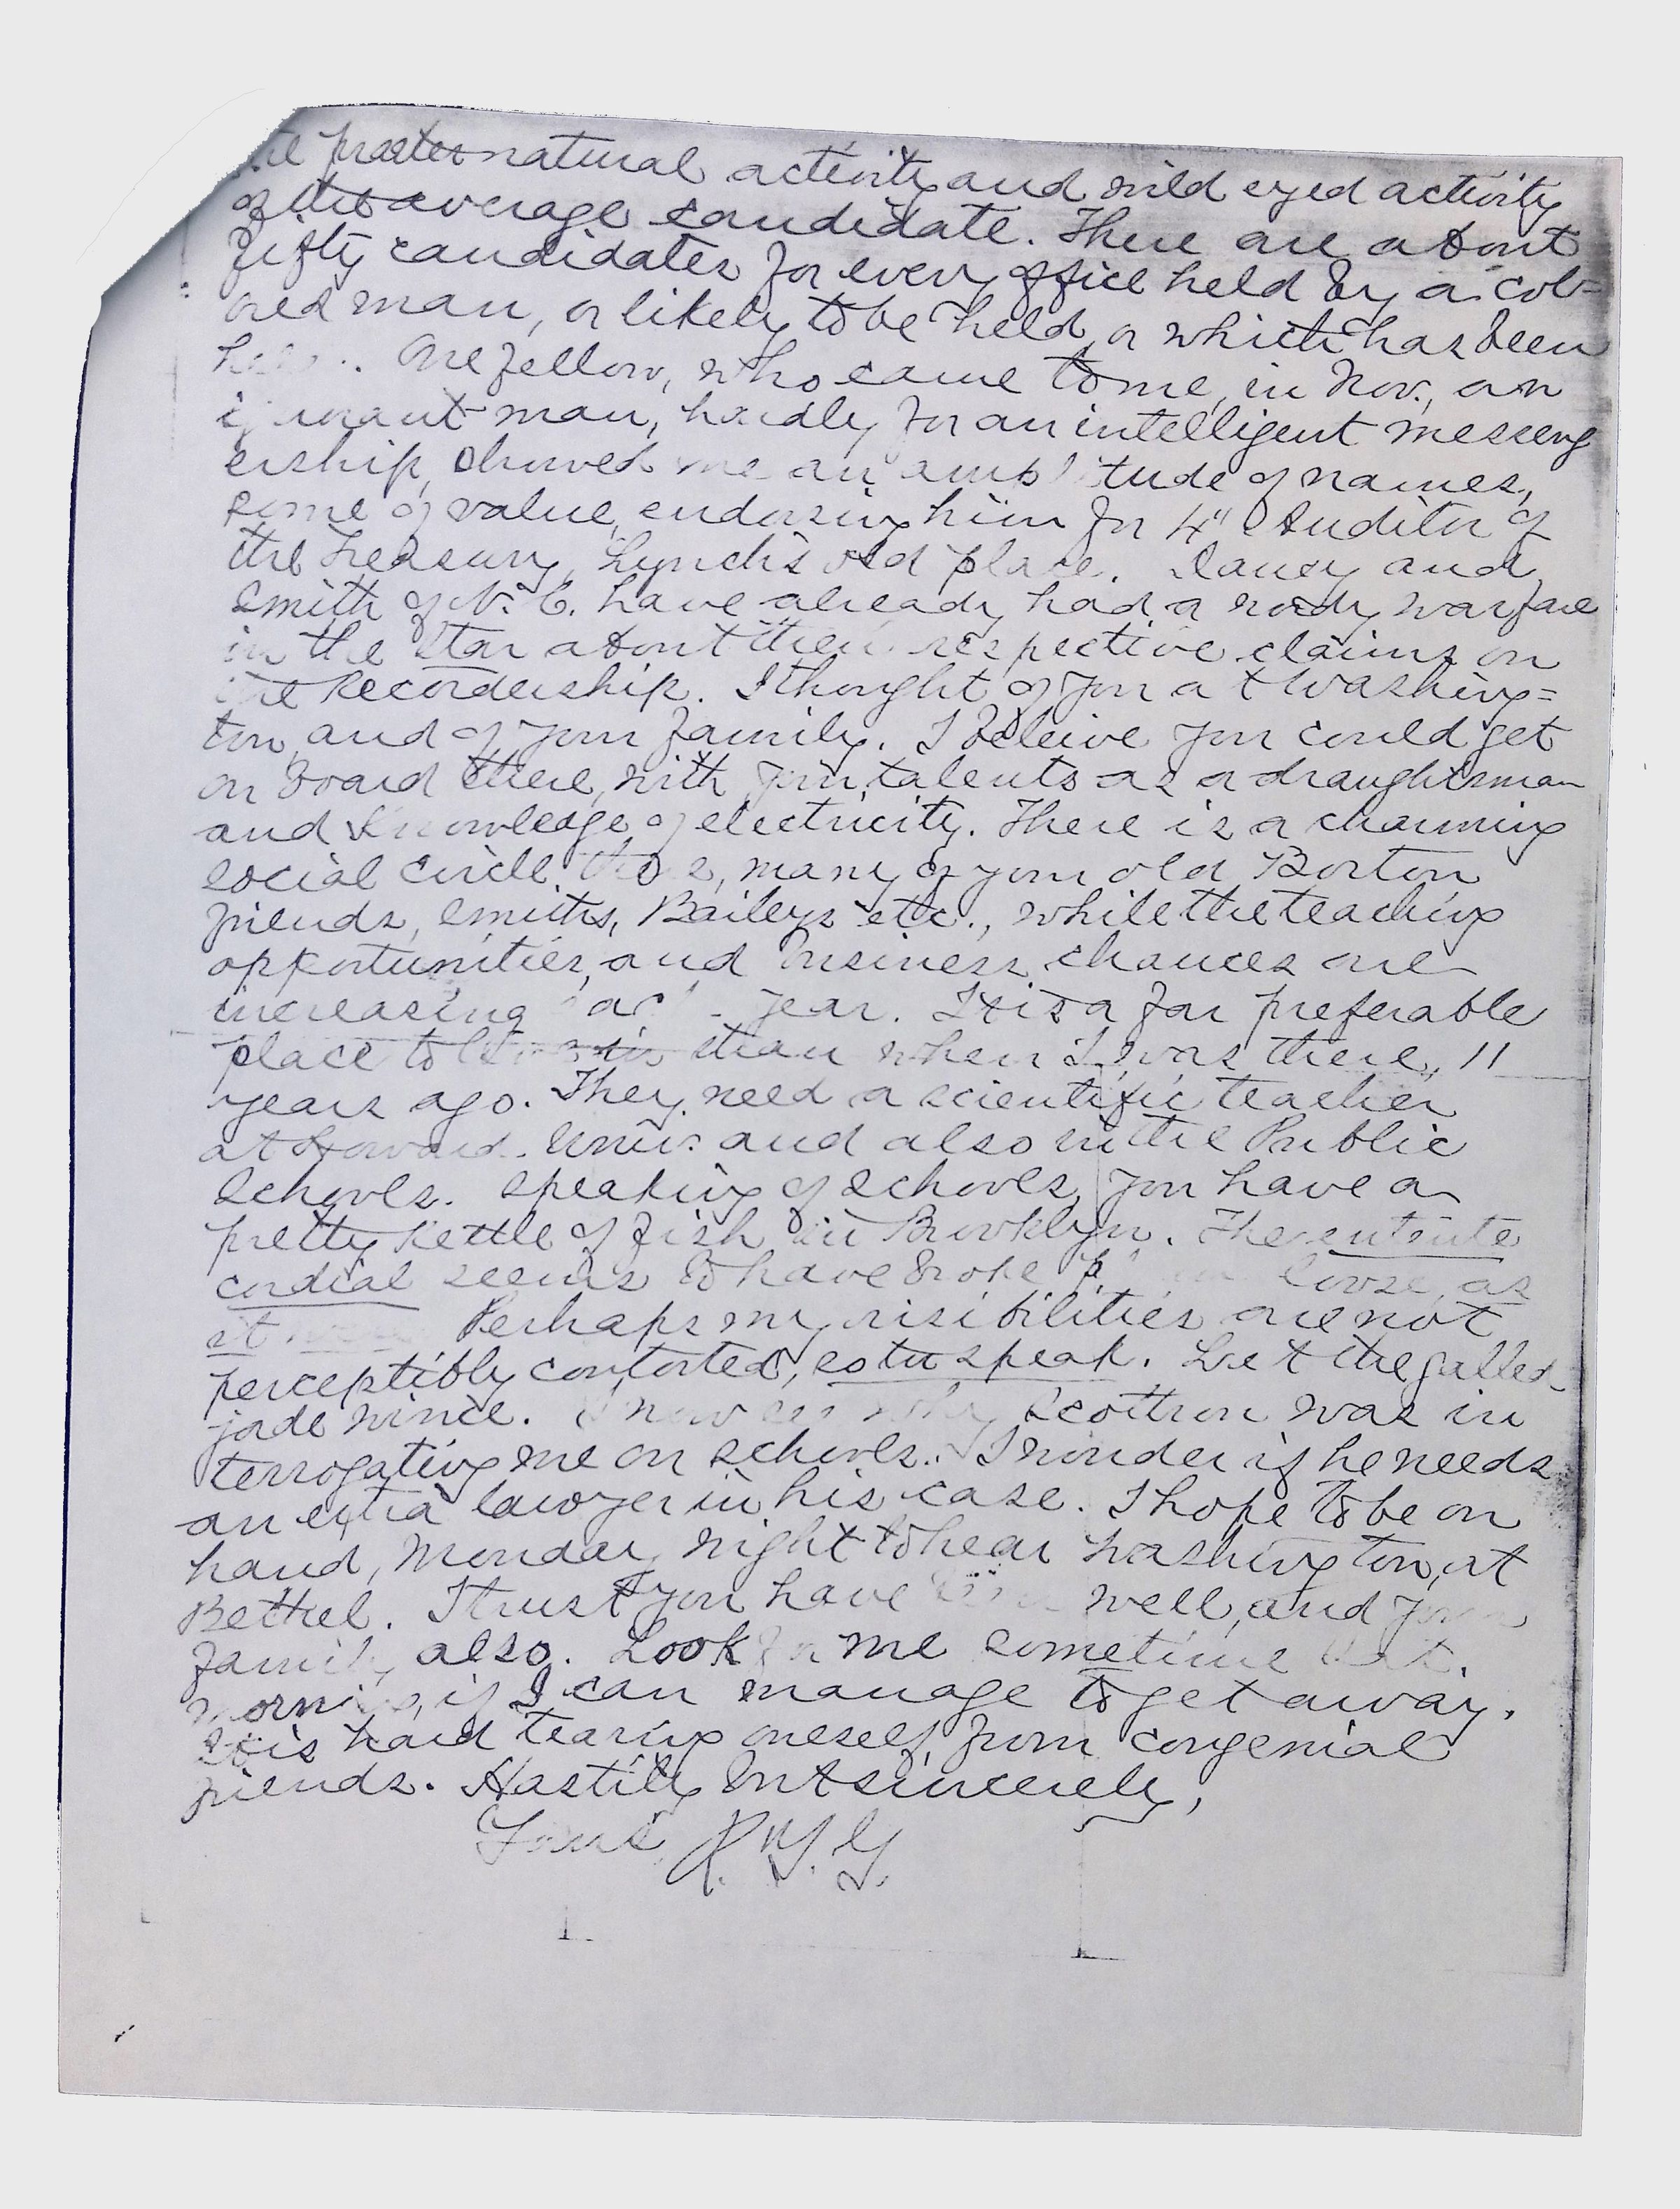 the praeternatural activity and wild eyed activity
of the average candidate. There are about
fifty candidates for every office held by a col=
ored man, or likely to be held, or which has been
One fellow, who came to me, in Nov., an
ignorant man, hardly for an intelligent messeng
ership, showed me an tude of names,
some of value, endorsing him for 4" Auditor of
the Treasury, Lynch's old place. Dancy and
Smith of N. C. have already had a wordy warfare
in the Star about their respective claims on
the Recordership. I thought of you at Washing=
ton, and of your family. I beleive you could get
on board there, with your talents as a draughtsman
and knowledge of electricity. There is a charming
social circle, many of your old Boston
friends, Smiths, Baileys etc., while the teaching
opportunities, and business chances are
increasing year. It is a far preferable
place to than when I was there, 11
years ago. They need a scientific teacher
at Howard. Univ. and also in the Public
Schools. Speaking of schools, you have a
pretty kettle of fish in Brooklyn. The entente
cordial seems to have broke loose, as
it Perhaps my risibilities are not
perceptibly contorted, so tu speak. Let the galled
jade wince. I now see why Scottron was in
terrogating me on schools. I wonder if he needs
an extra lawyer in his case. I hope to be on
hand, Monday night to hear Washington, at
Bethel. I trust you have been well, and your
family also. Look for me sometime
morning, if I can manage to get away.
It is hard tearing oneself from congenial
friends. Hastily but sincerely,
Yours, R. T. G.